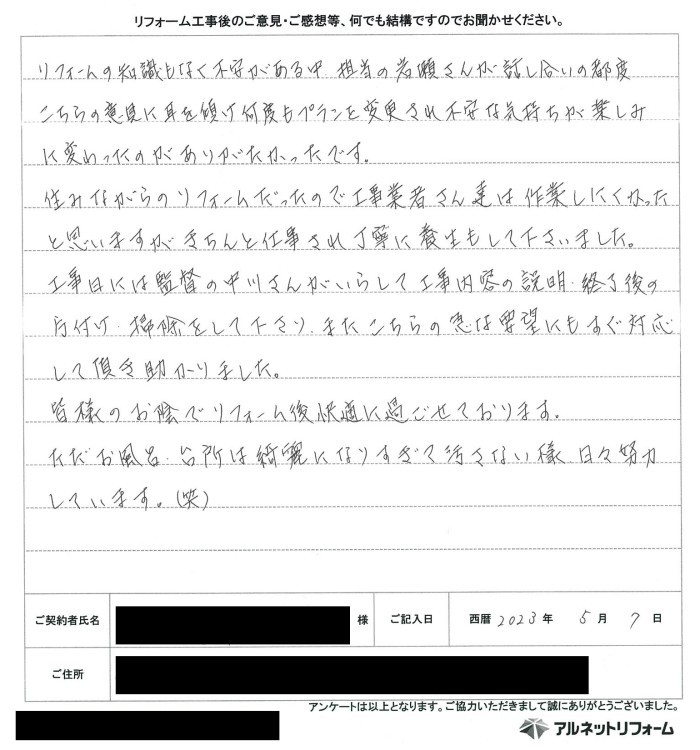 リフォーム工事後のご意見・ご感想等、何でも結構ですのでお聞かせください。
リフォームの知識もなく不安がある中、担当の岩瀬さんが話し合いの都度
こちらの意見に耳を傾け何度もプランを変更され不安な気持ちが楽しみ
に変わったのがありがたかったです。
住みながらのリフォームだったので工事業者さん達は作業しにくかった
と思いますがきちんと仕事され丁寧に養生もして下さいました。
工事日には監督の中川さんがいらして工事内容の説明・終了後の
片付け・掃除をして下さり、またこちらの急な要望にもすぐ対応
して頂き助かりました。
皆様のお陰でリフォーム後快適に過ごせております。
ただお風呂、台所は綺麗になりすぎて汚さない様、日々努力
しています。(笑)
ご契約者氏名 様 ご記入日 西暦 2023 年 5 月 7 日
ご住所
アンケートは以上となります。ご協力いただきまして誠にありがとうございました。
アルネットリフォーム